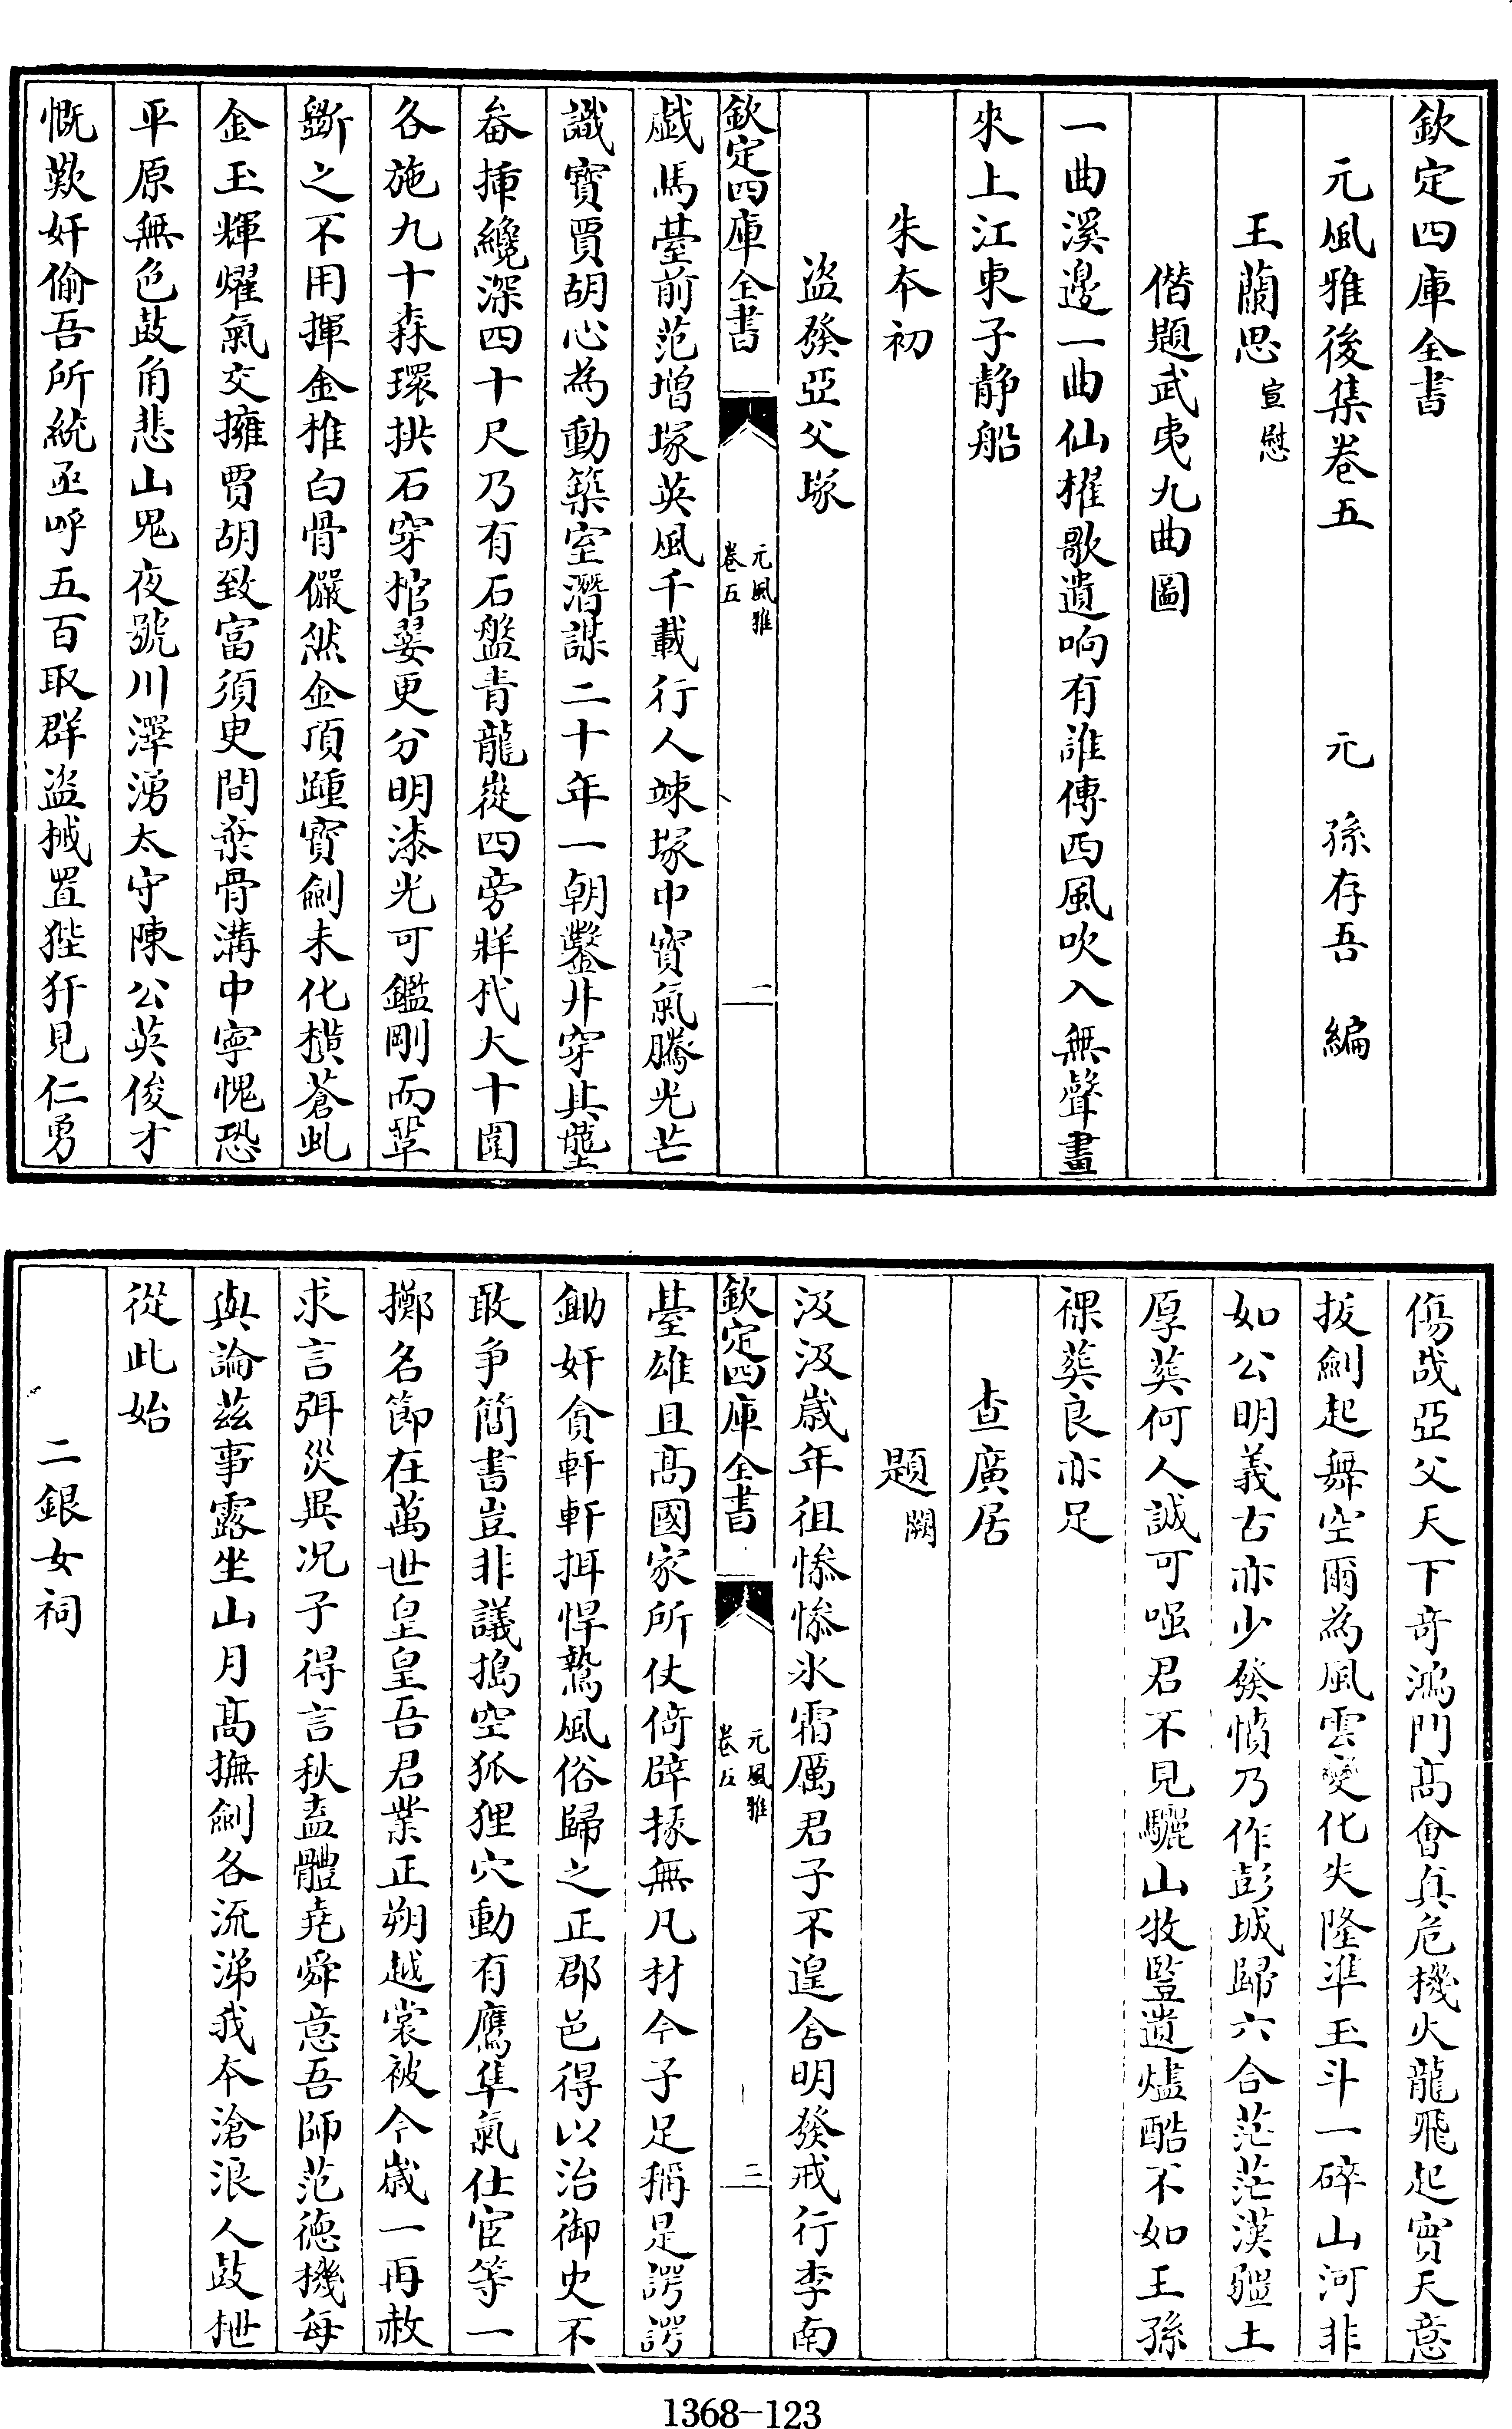 欽定四庫全書
元風雅後集卷五　元　孫存吾　編
王蘭思宣慰
偕題武夷九曲圖
一曲溪邊一曲仙櫂歌遺响有誰傳西風吹入無聲畫
來上江東子靜船
朱本初
盜發亞父塚
欽定四庫全書　元風雅　卷五　一
戲馬臺前范增塚英風千載行人竦塚中寶氣騰光芒
識寶賈胡心為動築室潛謀二十年一朝鑿井穿其壟
畚揷纔深四十尺乃有石盤青龍嵸四旁牂杙大十圍
各施九十森環拱石穿棺翣更分明漆光可鑑剛而鞏
斲之不用揮金椎白骨儼然金頂踵寶劍未化橫蒼虬
金玉輝耀氣交擁賈胡致富須臾間棄骨溝中寧愧恐
平原無色鼓角悲山鬼夜號川澤湧太守陳公英俊才
慨歎奸偷吾所統亟呼五百取群盜械置狴犴見仁勇
傷哉亞父天下奇鴻門髙會真危機火龍飛起實天意
拔劍起舞空爾為風雲變化失隆凖玉斗一碎山河非
如公明義古亦少發憤乃作彭城歸六合茫茫漢疆土
厚葬何人誠可嗤君不見驪山牧豎遺燼酷不如王孫
裸葬良亦足
查廣居
題闕
汲汲歲年徂慘慘氷霜厲君子不遑舍明發戒行李南
欽定四庫全書　元風雅　卷五　二
臺雄且髙國家所仗倚辟掾無凡材今子足稱是諤諤
鋤奸貪軒軒挕悍鷙風俗歸之正郡邑得以治御史不
敢爭簡書豈非議搗空狐狸穴動有鷹隼氣仕宦等一
擲名節在萬世皇皇吾君業正朔越裳被今歲一再赦
求言弭災異况子得言秋盍體堯舜意吾師范德機每
與論茲事露坐山月髙撫劍各流涕我本滄浪人鼓枻
從此始
二銀女祠
1368-123